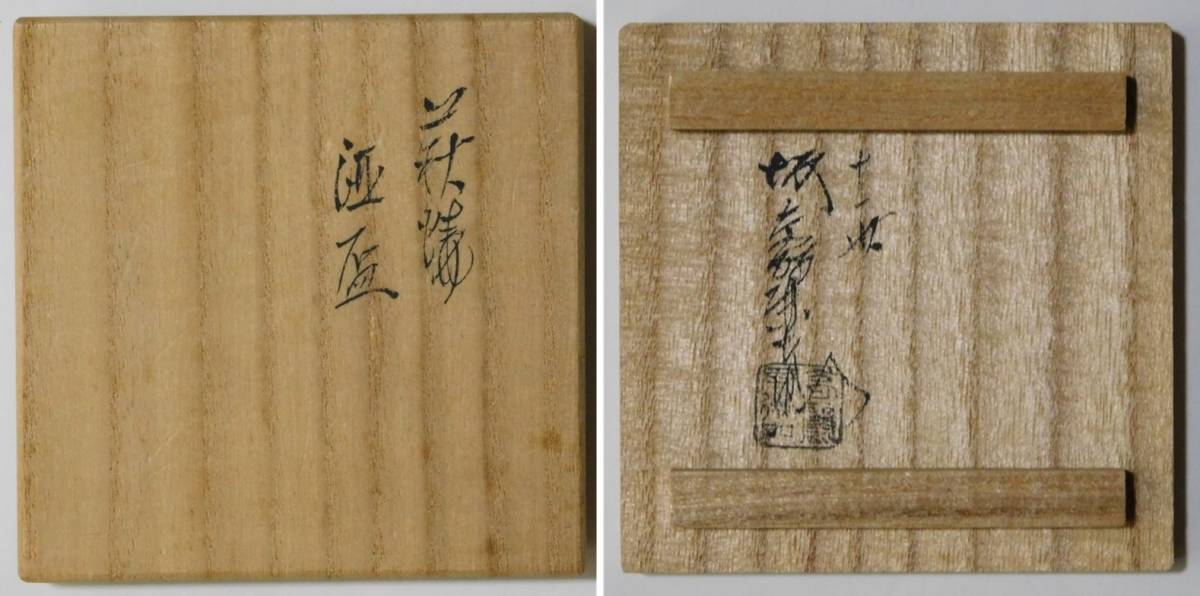 萩焼
酒盃
十一世
坂高麗左衛門